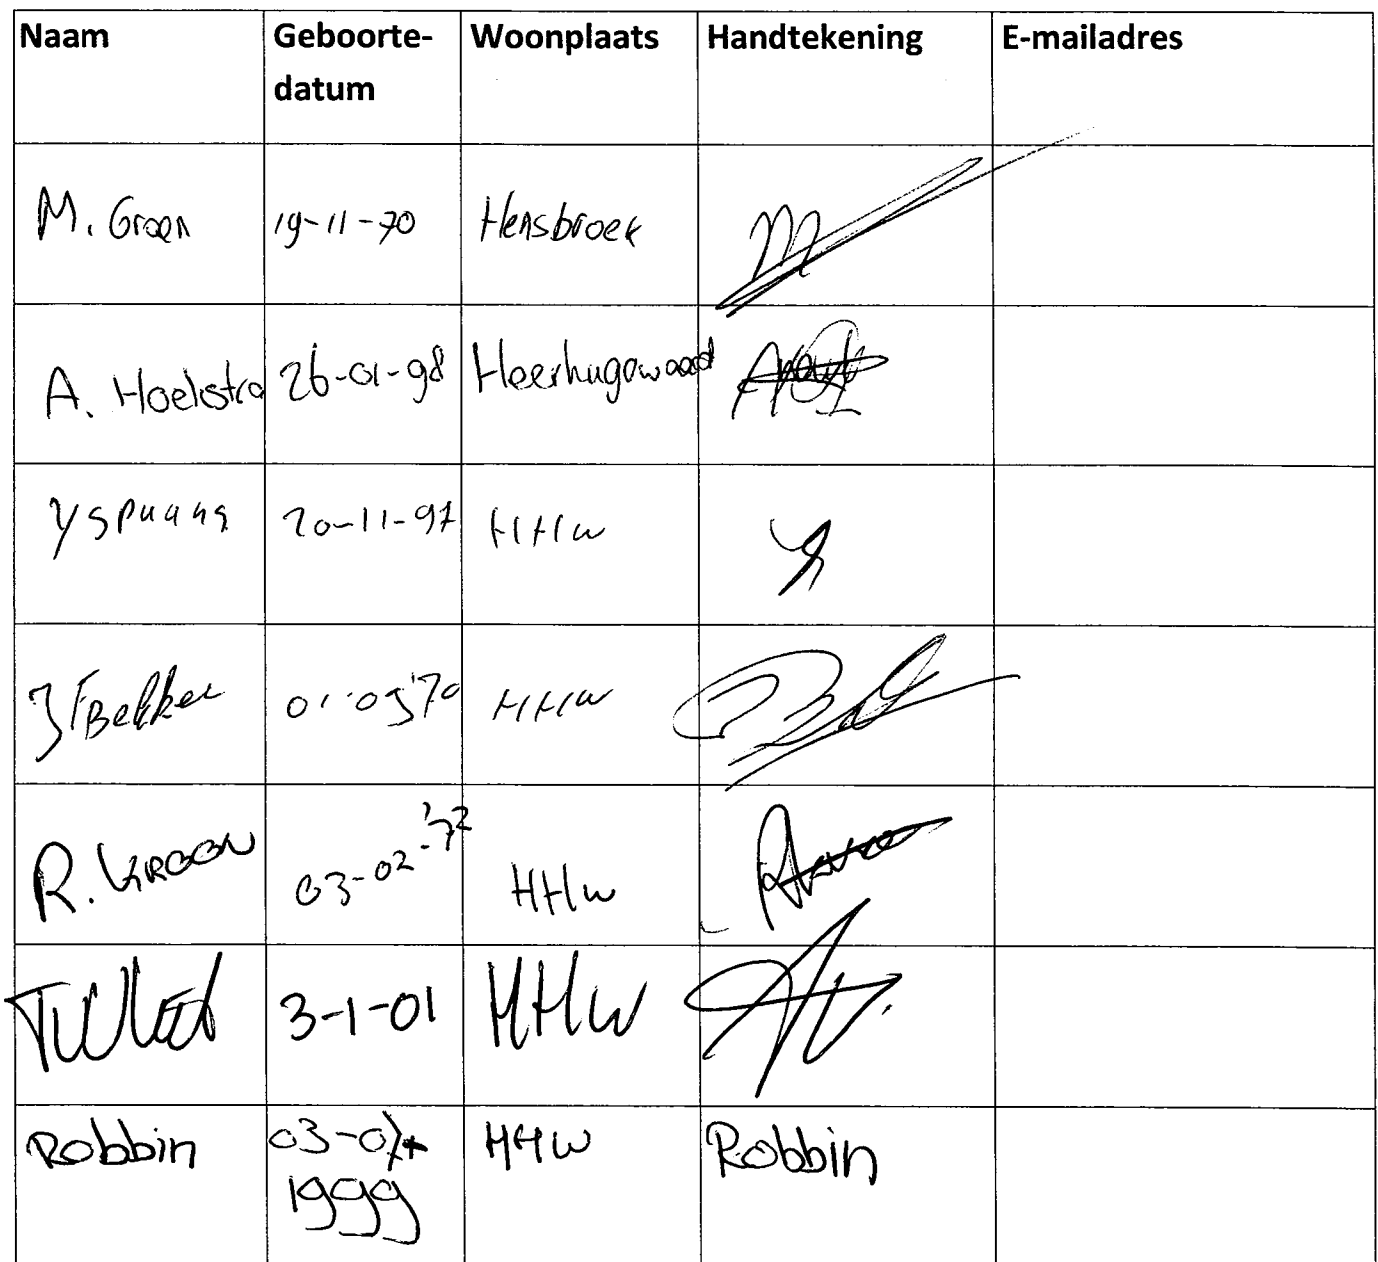 Naam Geboorte- Woonplaats Handtekening E-mailadres
datum
M. Groen 19-11-70 Hensbroek
A. Hoekstra 26-01-98 Heerhugowaard
20-11-97 HHW
Bekker 70 HHW
R. KROON 03-02-'72 HHW
3-1-01 HHW
Robbin 03-07- HHW Robbin
1999